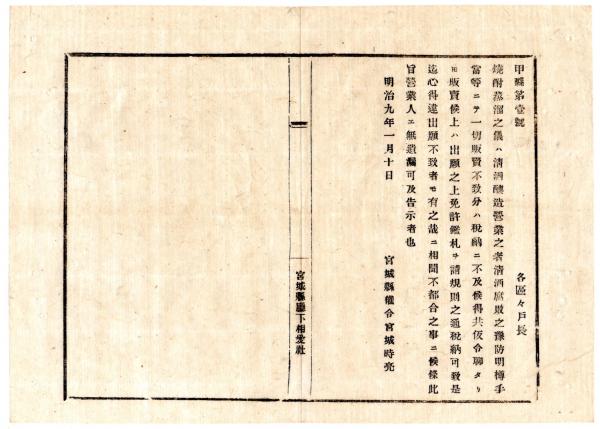 甲縣第壹號
各區々戶長
燒酎蒸溜之儀ハ淸酒釀造營業之者淸酒腐敗之豫防明樽手
當等ニテ一切販賣不致分ハ稅納ニ不及候得共仮令聊タリ
ㇳ販賣候上ハ出願之上免許鑑札ヲ請規則之通稅納可致是
迄心得違出願不致者モ有之哉ニ相聞不都合之事ニ候條此
旨營業人エ無遺漏可及告示者也
明治九年一月十日
宮城縣權令宮城時亮
宮城縣廳下相愛社